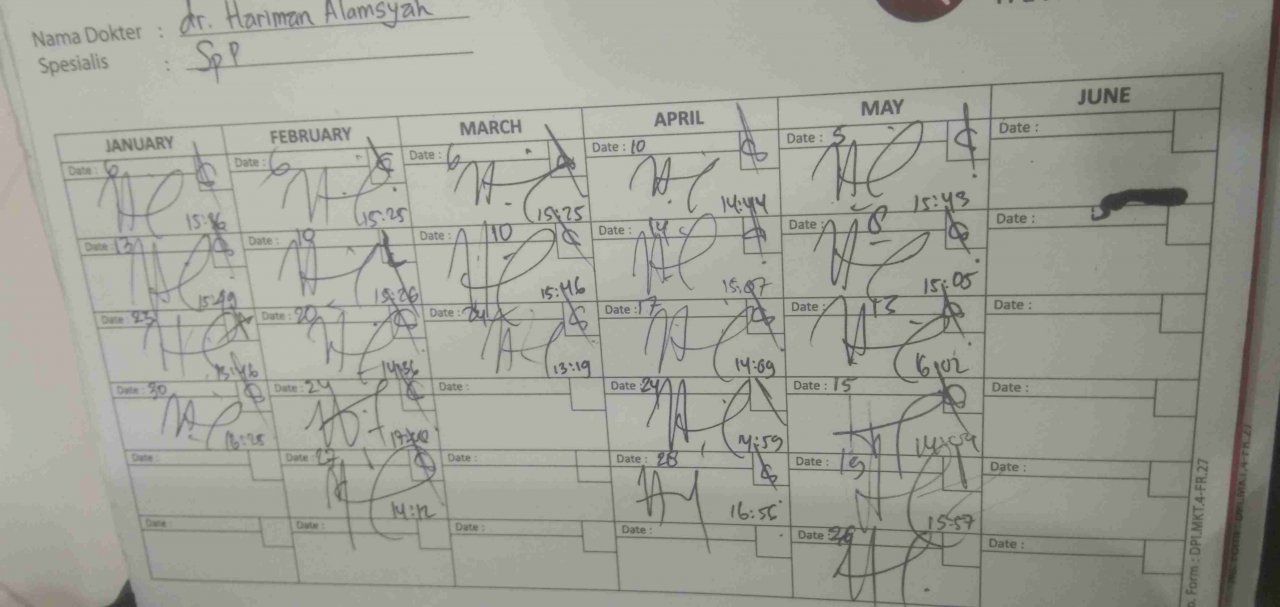 Nama Dokter : dr. Hariman Alamsyah
Spesialis : SpP
JANUARY FEBRUARY MARCH APRIL MAY JUNE
Date : 6 Date : 6 Date : 6 Date : 10 Date : 5 Date :
15:25 15:25 14:44 15:43
Date : 13 Date : 19 Date : 10 Date : 14 Date : 8 Date :
15:49 15:26 15:46 15:07 15:05
Date : 23 Date : 20 Date : 24 Date : 17 Date : 13 Date :
14:36 13:19 14:09
Date : 30 Date : 24 Date : Date : 24 Date : 15 Date :
16:25 14:59
Date : Date : 27 Date : Date : 28 Date : 19 Date :
14:12 16:55 15:57
Date : Date : Date : Date : Date : 26 Date :
Form : DPI.MKT.4-FR.27